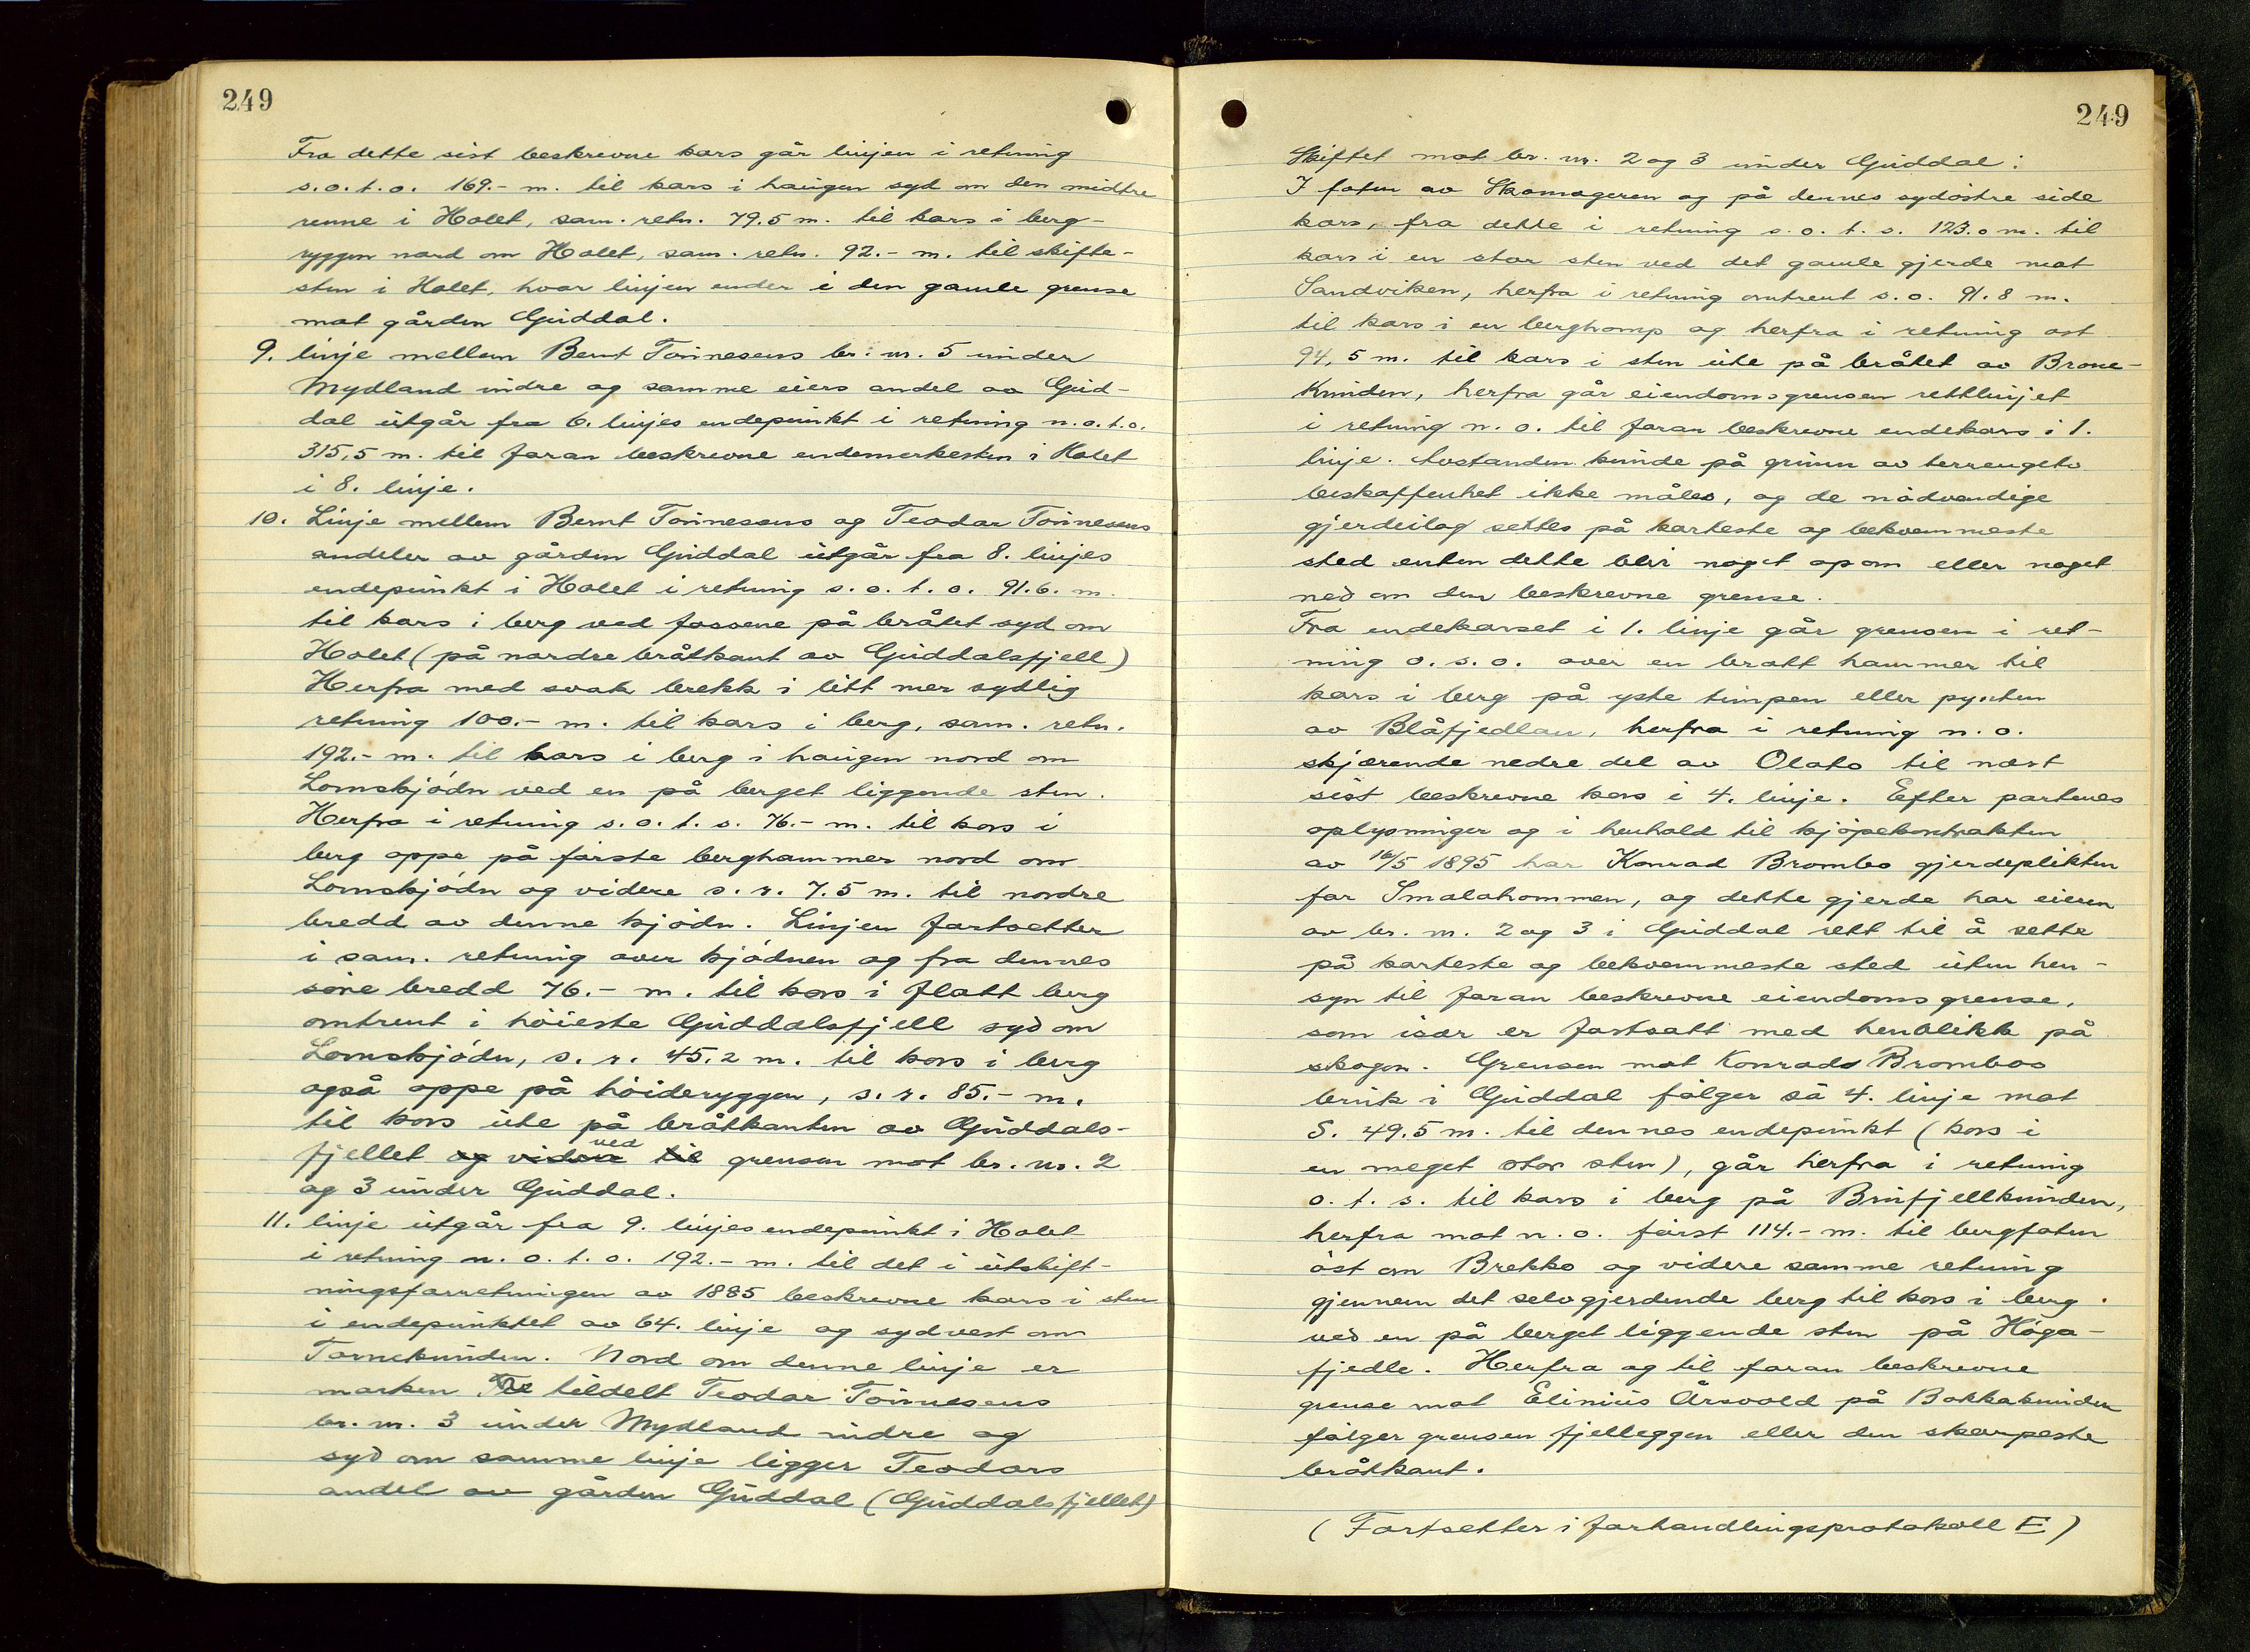 249
Fra dette sist beskrevne kors går linjen i retning
s.o.t.o. 169.- m. til kors i haugen syd om den midtre
renne i Holet, sam. retn. 79.5 m. til kors i berg-
ryggen nord om Holet, sam. retn. 92.- m. til skifte-
sten i Holet, hvor linjen ender i den gamle grense
mot gården Guddal.
9. linje mellem Bernt Tønnesens br. nr. 5 under
Mydland indre og samme eiers andel av Gud-
dal utgår fra 6. linjes endepunkt i retning n.o.t.o.
315,5 m. til foran beskrevne endemerkesten i Holet
i 8. linje.
10. Linje mellem Bernt Tønnesens og Teodor Tønnesens
andeler av gården Guddal utgår fra 8. linjes
endepunkt i Holet i retning s.o.t.o. 91.6. m.
til kors i berg ved fossene på bråtet syd om
Holet (på nordre bråtkant av Guddalsfjell)
Herfra med svak brekk i litt mer sydlig
retning 100.- m. til kors i berg, sam. retn.
192.- m. til kors i berg i haugen nord om
Lomskjødn ved en på berget liggende sten.
Herfra i retning s.o.t.s. 76.- m. til kors i
berg oppe på første berghammer nord om
Lomskjødn og videre s.r. 7.5 m. til nordre
bredd av denne kjødn. Linjen fortsetter
i sam. retning over kjødnen og fra dennes
søre bredd 76.- m. til kors i flatt berg
omtrent i høieste Guddalsfjell syd om
Lomskjødn, s.r. 45.2 m. til kors i berg
også oppe på høideryggen, s.r. 85.- m.
til kors ute på bråtkanten av Guddals-
fjellet og videre til ved grensen mot br. nr. 2
og 3 under Guddal.
11. linje utgår fra 9. linjes endepunkt i Holet
i retning n.o.t.o. 192.- m. til det i utskift-
ningsforretningen av 1885 beskrevne kors i sten
i endepunktet av 64. linje og sydvest om
Torneknuden. Nord om denne linje er
marken tildelt Teodor Tønnesens
br. nr. 3 under Mydland indre og
syd om samme linje ligger Teodors
andel av gården Guddal (Guddalsfjellet)
249
Skiftet mot br. nr. 2 og 3 under Guddal:
I foten av Skomageren og på dennes sydøstre side
kors, fra dette i retning s.o.t.s. 123.0 m. til
kors i en stor sten ved det gamle gjerde mot
Sandviken, herfra i retning omtrent s.o. 91.8 m.
til kors i en berghomp og herfra i retning ost
94,5 m. til kors i sten ute på bråtet av Brone-
Knuden, herfra går eiendomsgrensen rettlinjet
i retning n.o. til foran beskrevne endekors i 1.
linje. Avstanden kunde på grunn av terrengets
beskaffenhet ikke måles, og de nødvendige
gjerdeilag settes på korteste og bekvemmeste
sted enten dette blir noget opom eller noget
ned om den beskrevne grense.
Fra endekorset i 1. linje går grensen i ret-
ning o.s.o. over en bratt hammer til
kors i berg på yste timpen eller pynten
av Blåfjedlan, herfra i retning n.o.
skjærende nedre del av Olaks til næst
sist beskrevne kors i 4. linje. Efter partenes
oplysninger og i henhold til kjøpekontrakten
av 16/5 1895 har Konrad Brombo gjerdeplikten
for Smalahommen, og dette gjerde har eieren
av br. nr. 2 og 3 i Guddal rett til å sette
på korteste og bekvemmeste sted uten hen-
syn til foran beskrevne eiendomsgrense,
som især er fastsatt med henblikk på
skogen. Grensen mot Konrads Brombos
bruk i Guddal følger så 4. linje mot
S. 49.5 m. til dennes endepunkt (kors i
en meget stor sten), går herfra i retning
o.t.s. til kors i berg på Brufjellknuden,
herfra mot n.o. først 114.- m. til bergfoten
øst om Brekko og videre samme retning
gjennem det selvgjerdende berg til kors i berg
ved en på berget liggende sten på Høga-
fjedle. Herfra og til foran beskrevne
grense mot Elinius Årsvold på Bokkaknuden
følger grensen fjelleggen eller den skarpeste
bråtkant.
(Fortsetter i forhandlingsprotokoll E)